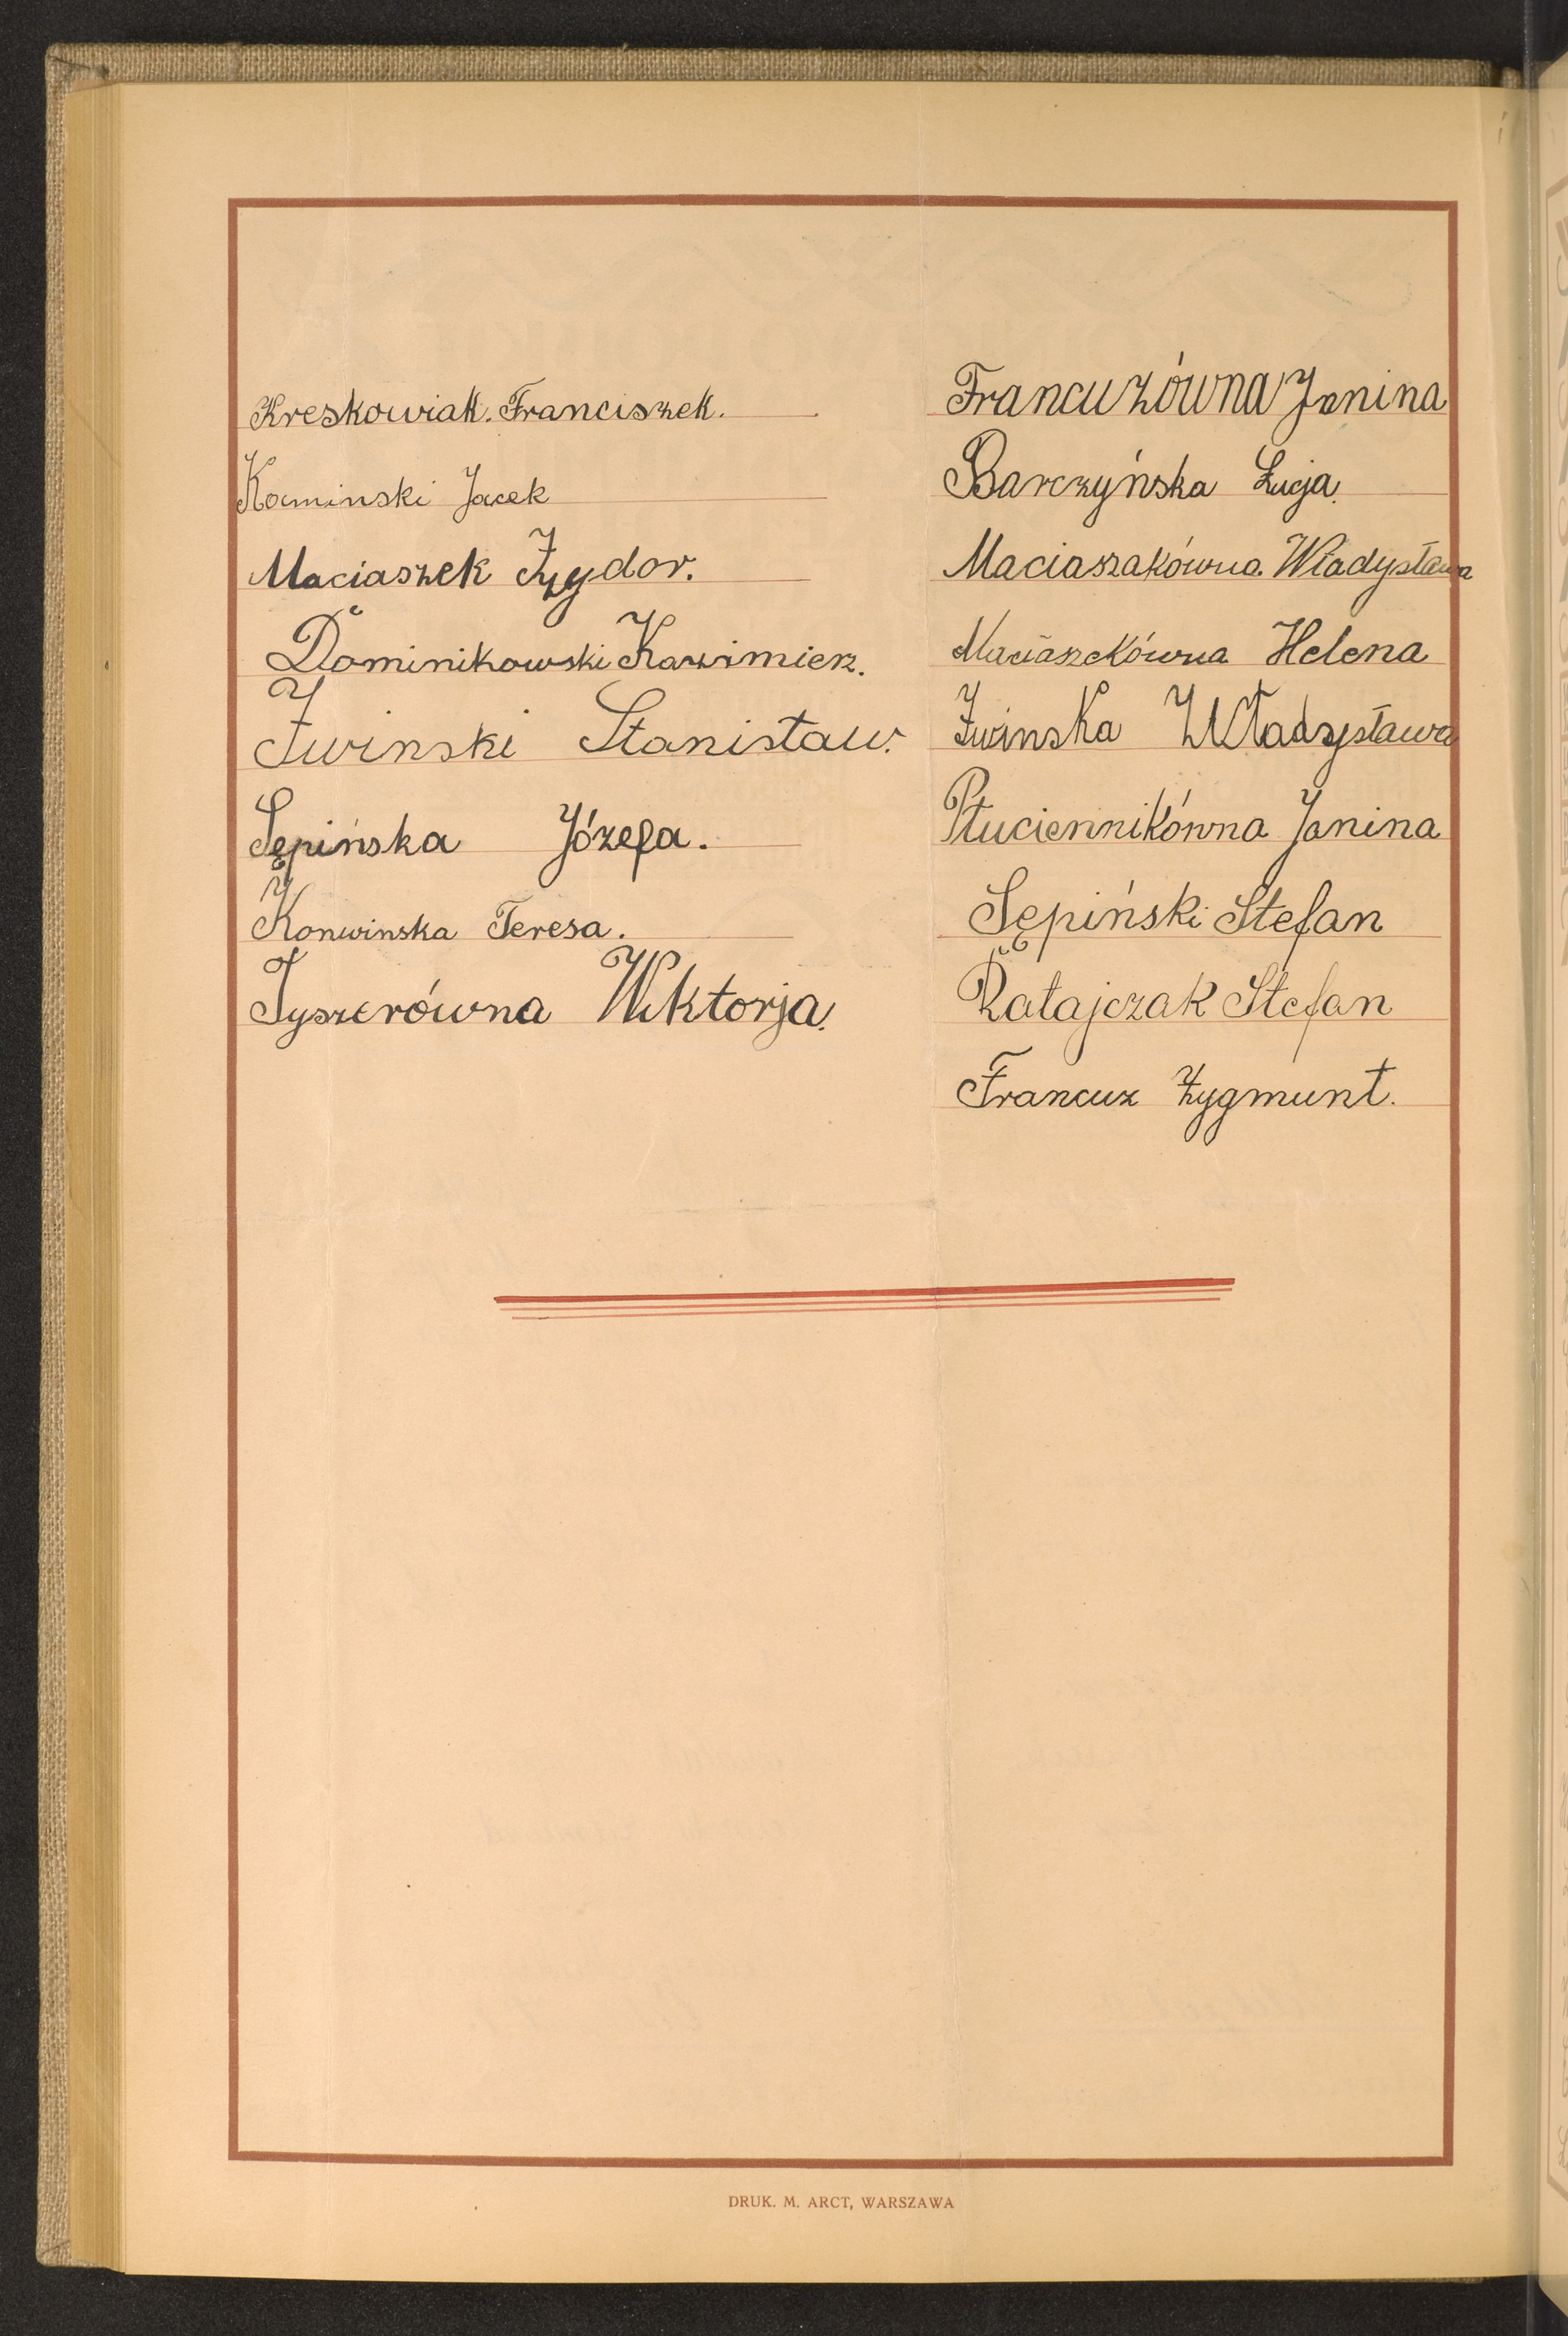 Kreskowiak. Franciszek.
Kaminski Jacek
Maciaszek Izydor.
Dominikowski Kazimierz.
Iwinski Stanisław.
Sępińska Józefa.
Konwinska Teresa.
Tyszerówna Wiktorja.
Francuzówna Janina
Barczyńska Łucja.
Maciaszakówna Władysława
Maciaszekówna Helena
Iwinska Władysława
Płuciennikówna Janina
Sępiński Stefan
Ratajczak Stefan
Francuz Zygmunt.
DRUK. M. ARCT, WARSZAWA